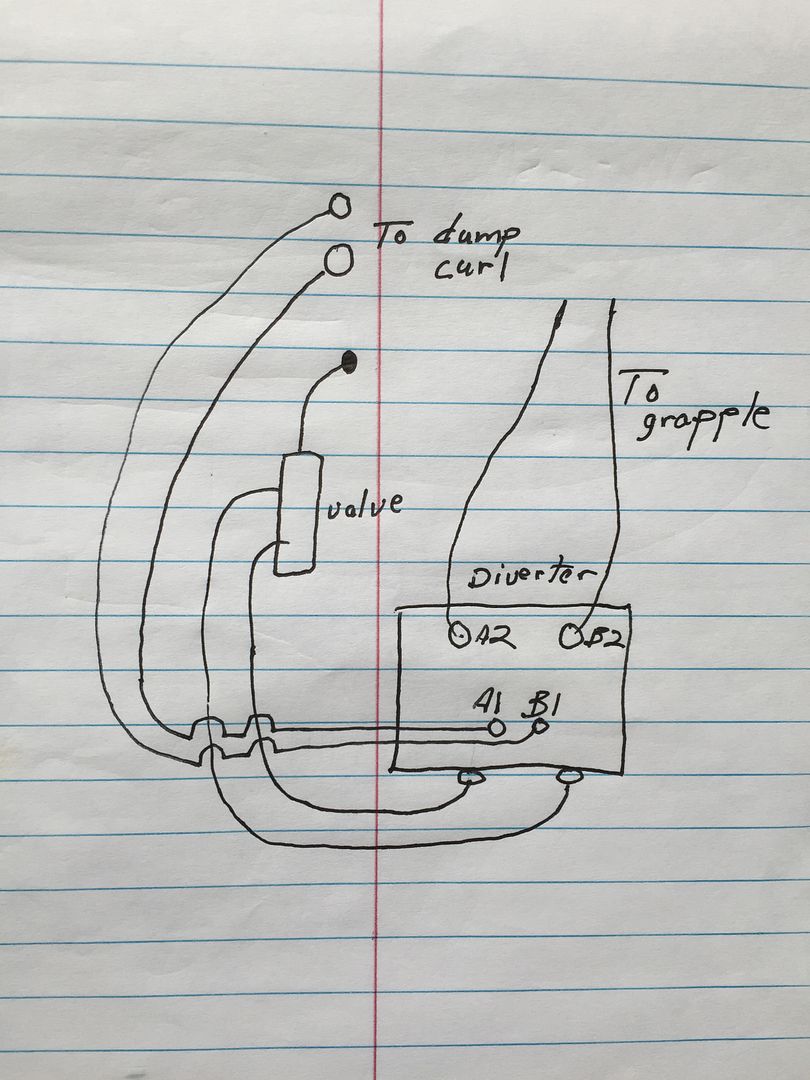 To dump
curl
To
grapple
valve
Diverter
A2 B2
A1 B1